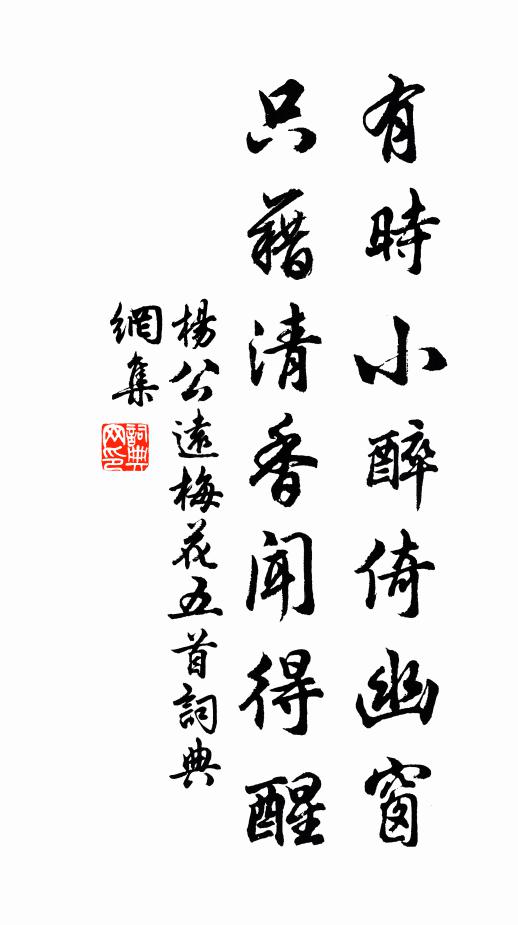 有時小醉倚幽窗
只藉清香聞得醒
楊公遠梅花五首詞典
網集
詞典网印